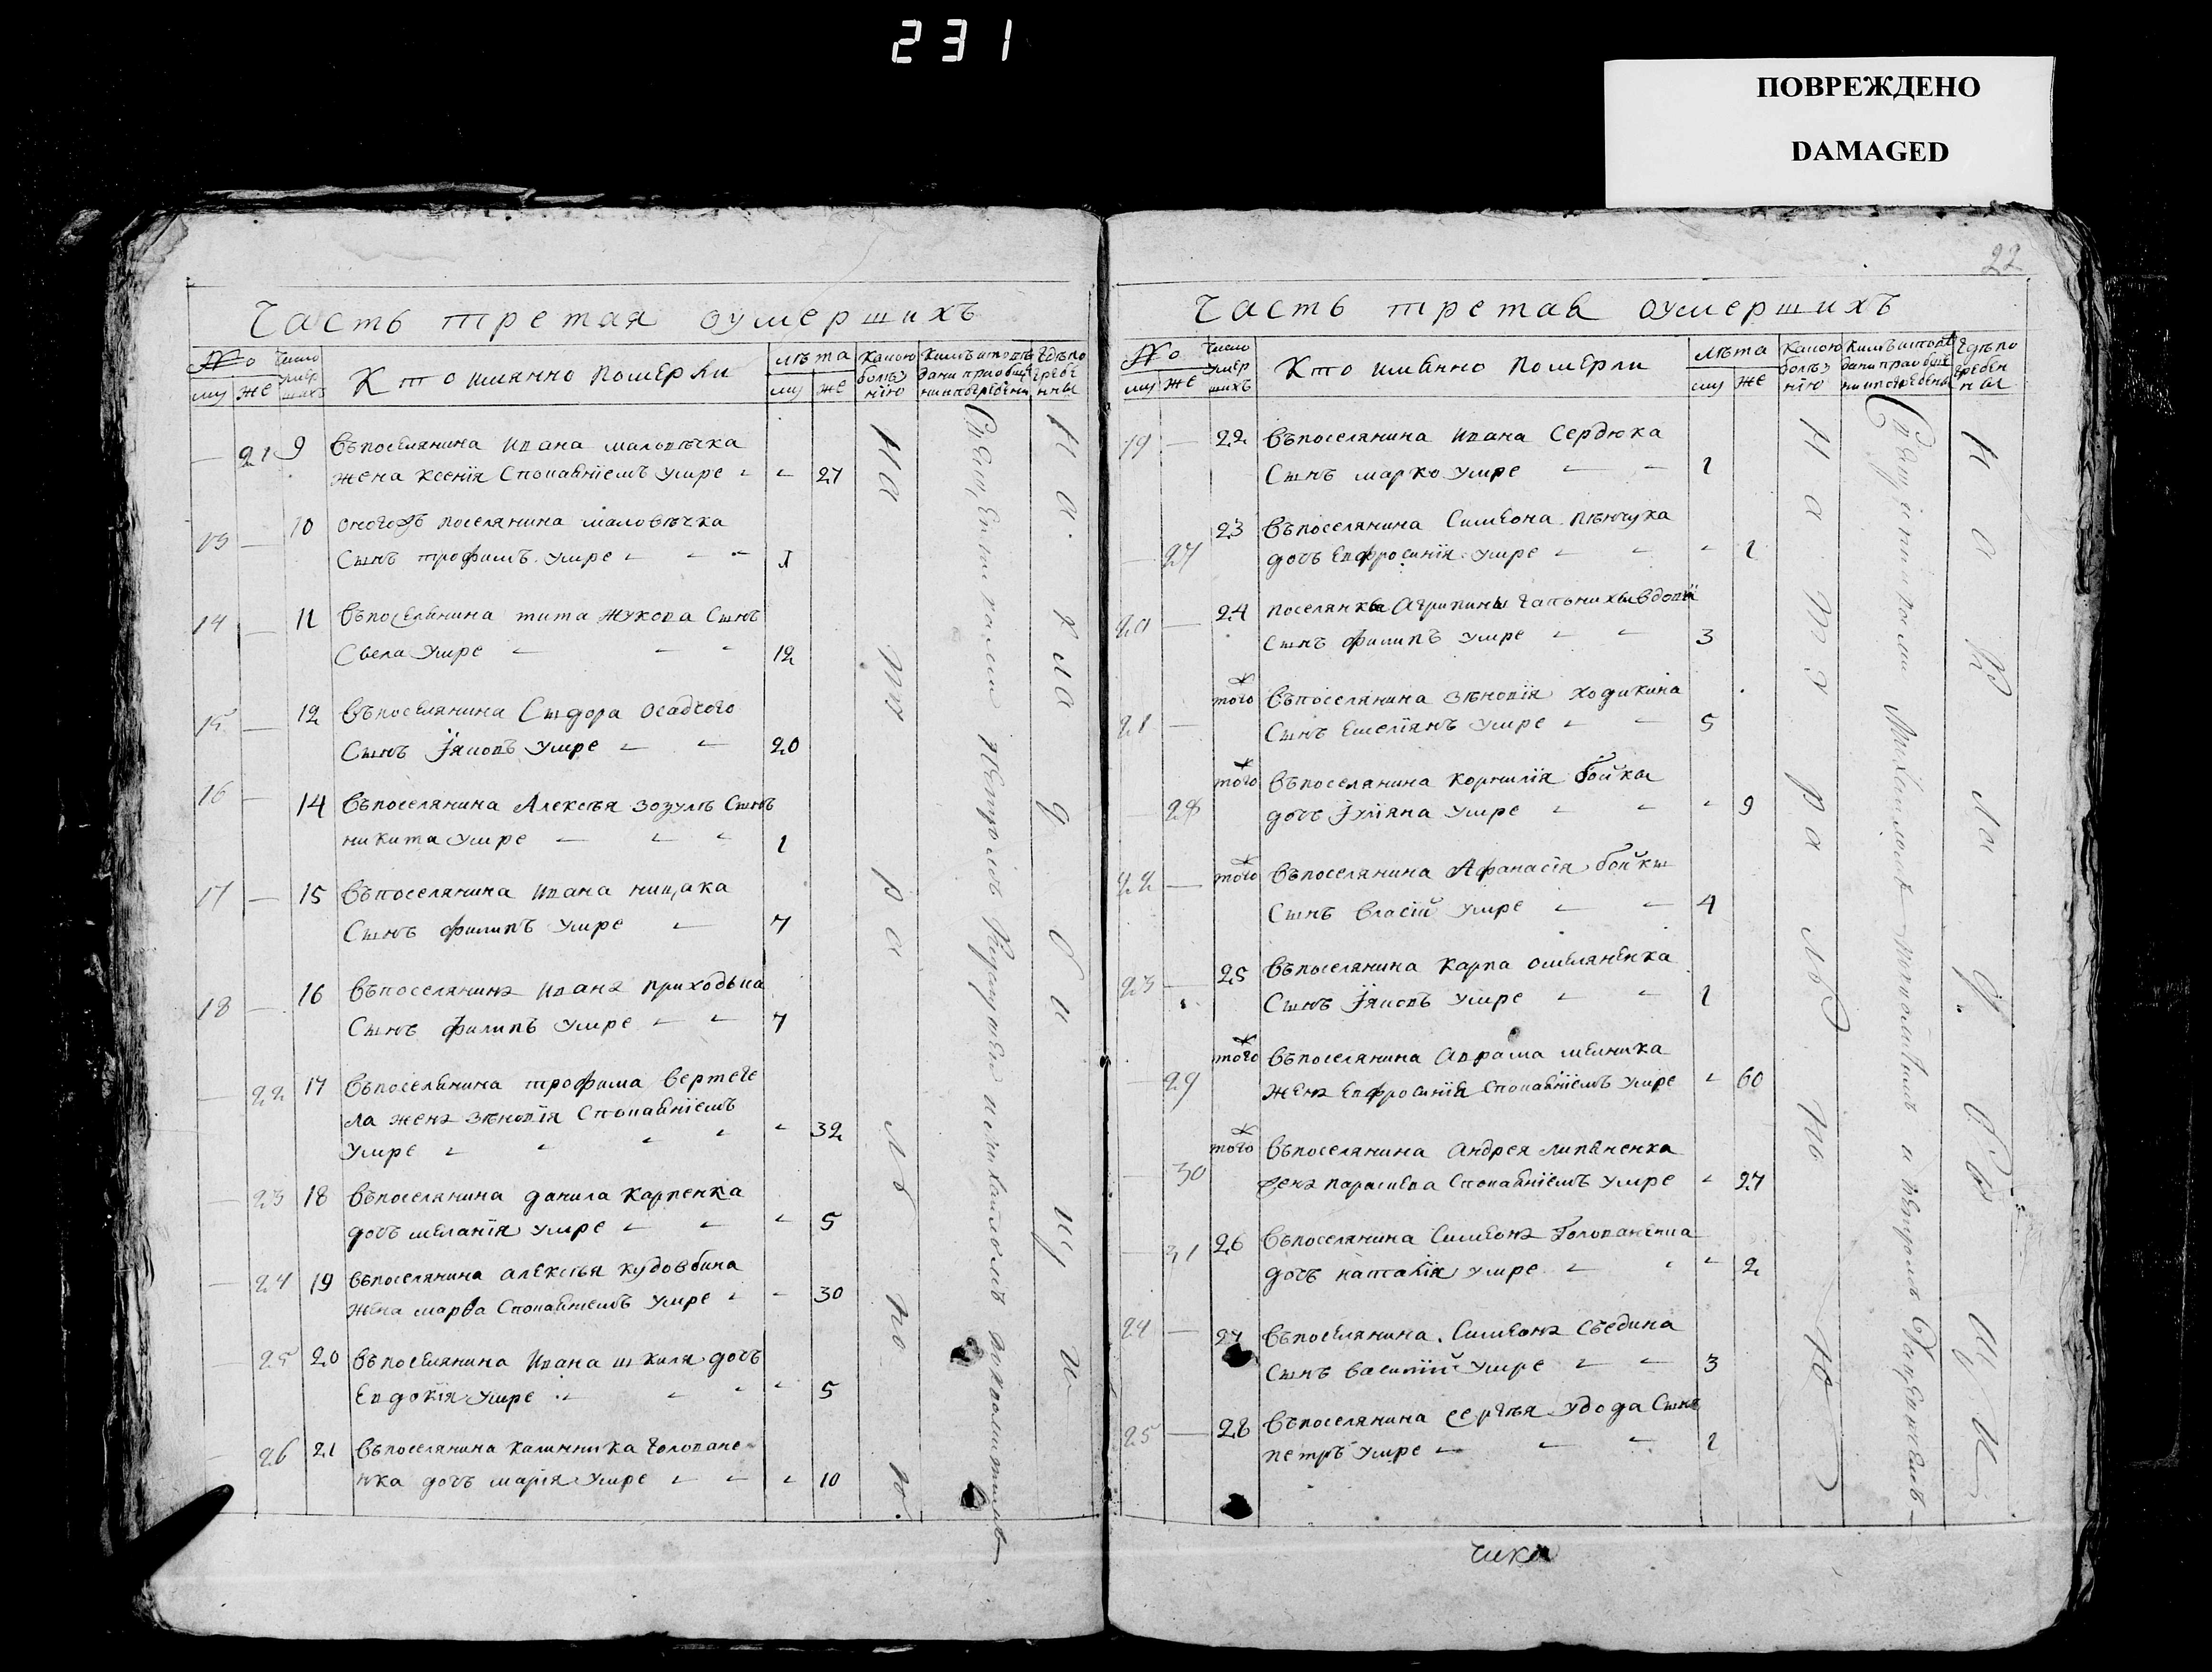 231
ПОВРЕЖДЕНО
DAMAGED
Часть третая оумершихъ
№о
число умершихъ
Кто имянно померли
лѣта
Какою болѣзнію
Гдѣ погребенны
му же
му же
21 9 Въпоселянина Ивана маловѣчка
жена Ксенія Спопаяніемъ умре 27
13 10 оногожъ поселянина маловѣчка
Сынъ трофимъ умре 1
14 11 Въпоселянина тита жукова Сынъ
Савела умре 12
15 12 Въпоселянина Сыдора осадчого
Сынъ Іяковъ умре 20
16 14 Въпоселянина Алексѣя зозулѣ Сынъ
никита умре 1
17 15 Въпоселянина Ивана нищака
Сынъ филипъ умре 7
18 16 Въпоселянина Ивана приходька
Сынъ филипъ умре 7
22 17 Въпоселянина трофима вертеге
ла жена зѣновія Спопаяніемъ
умре 32
23 18 Въпоселянина данила карпенка
дочь меланія умре 5
24 19 Въпоселянина алексѣя кудовбина
жена марѳа Спопаяніемъ умре 30
25 20 Въпоселянина Ивана шкиля дочь
Евдокія умре 5
26 21 Въпоселянина калинника голопане
нка дочь марія умре 10
Натуралною
На кладбищи
22
Часть третая оумершихъ
№о
число умершихъ
Кто имянно померли
лѣта
Какою болѣзнію
Гдѣ погребенны
му же
му же
19 22 Въпоселянина Ивана Сердюка
Сынъ марко умре 1
27 23 Въпоселянина Симеона пѣнчука
дочь Евфросинія умре 1
20 24 поселянки Агрипины гапонихи вдовы
Сынъ филипъ умре 3
21 того Въпоселянина зѣновія ходикина
Сынъ емеліянъ умре 5
28 того Въпоселянина корнилія бойки
дочь Іуліяна умре 9
22 того Въпоселянина Афанасія бойки
Сынъ власій умре 4
23 25 Въпоселянина карпа омеляненка
Сынъ Іяковъ умре 1
29 того Въпоселянина Аврама мелника
жена Евфросинія Спопаяніемъ умре 60
30 того Въпоселянина Андрея липяненка
жена параскева Спопаяніемъ умре 27
31 26 Въпоселянина Симеона Голопаненка
дочь наталія умре 2
24 27 Въпоселянина Симеона Съедина
Сынъ василій умре 3
25 28 Въпоселянина сергѣя удода Сынъ
петръ умре 1
Натуралною
На кладбищи
чика